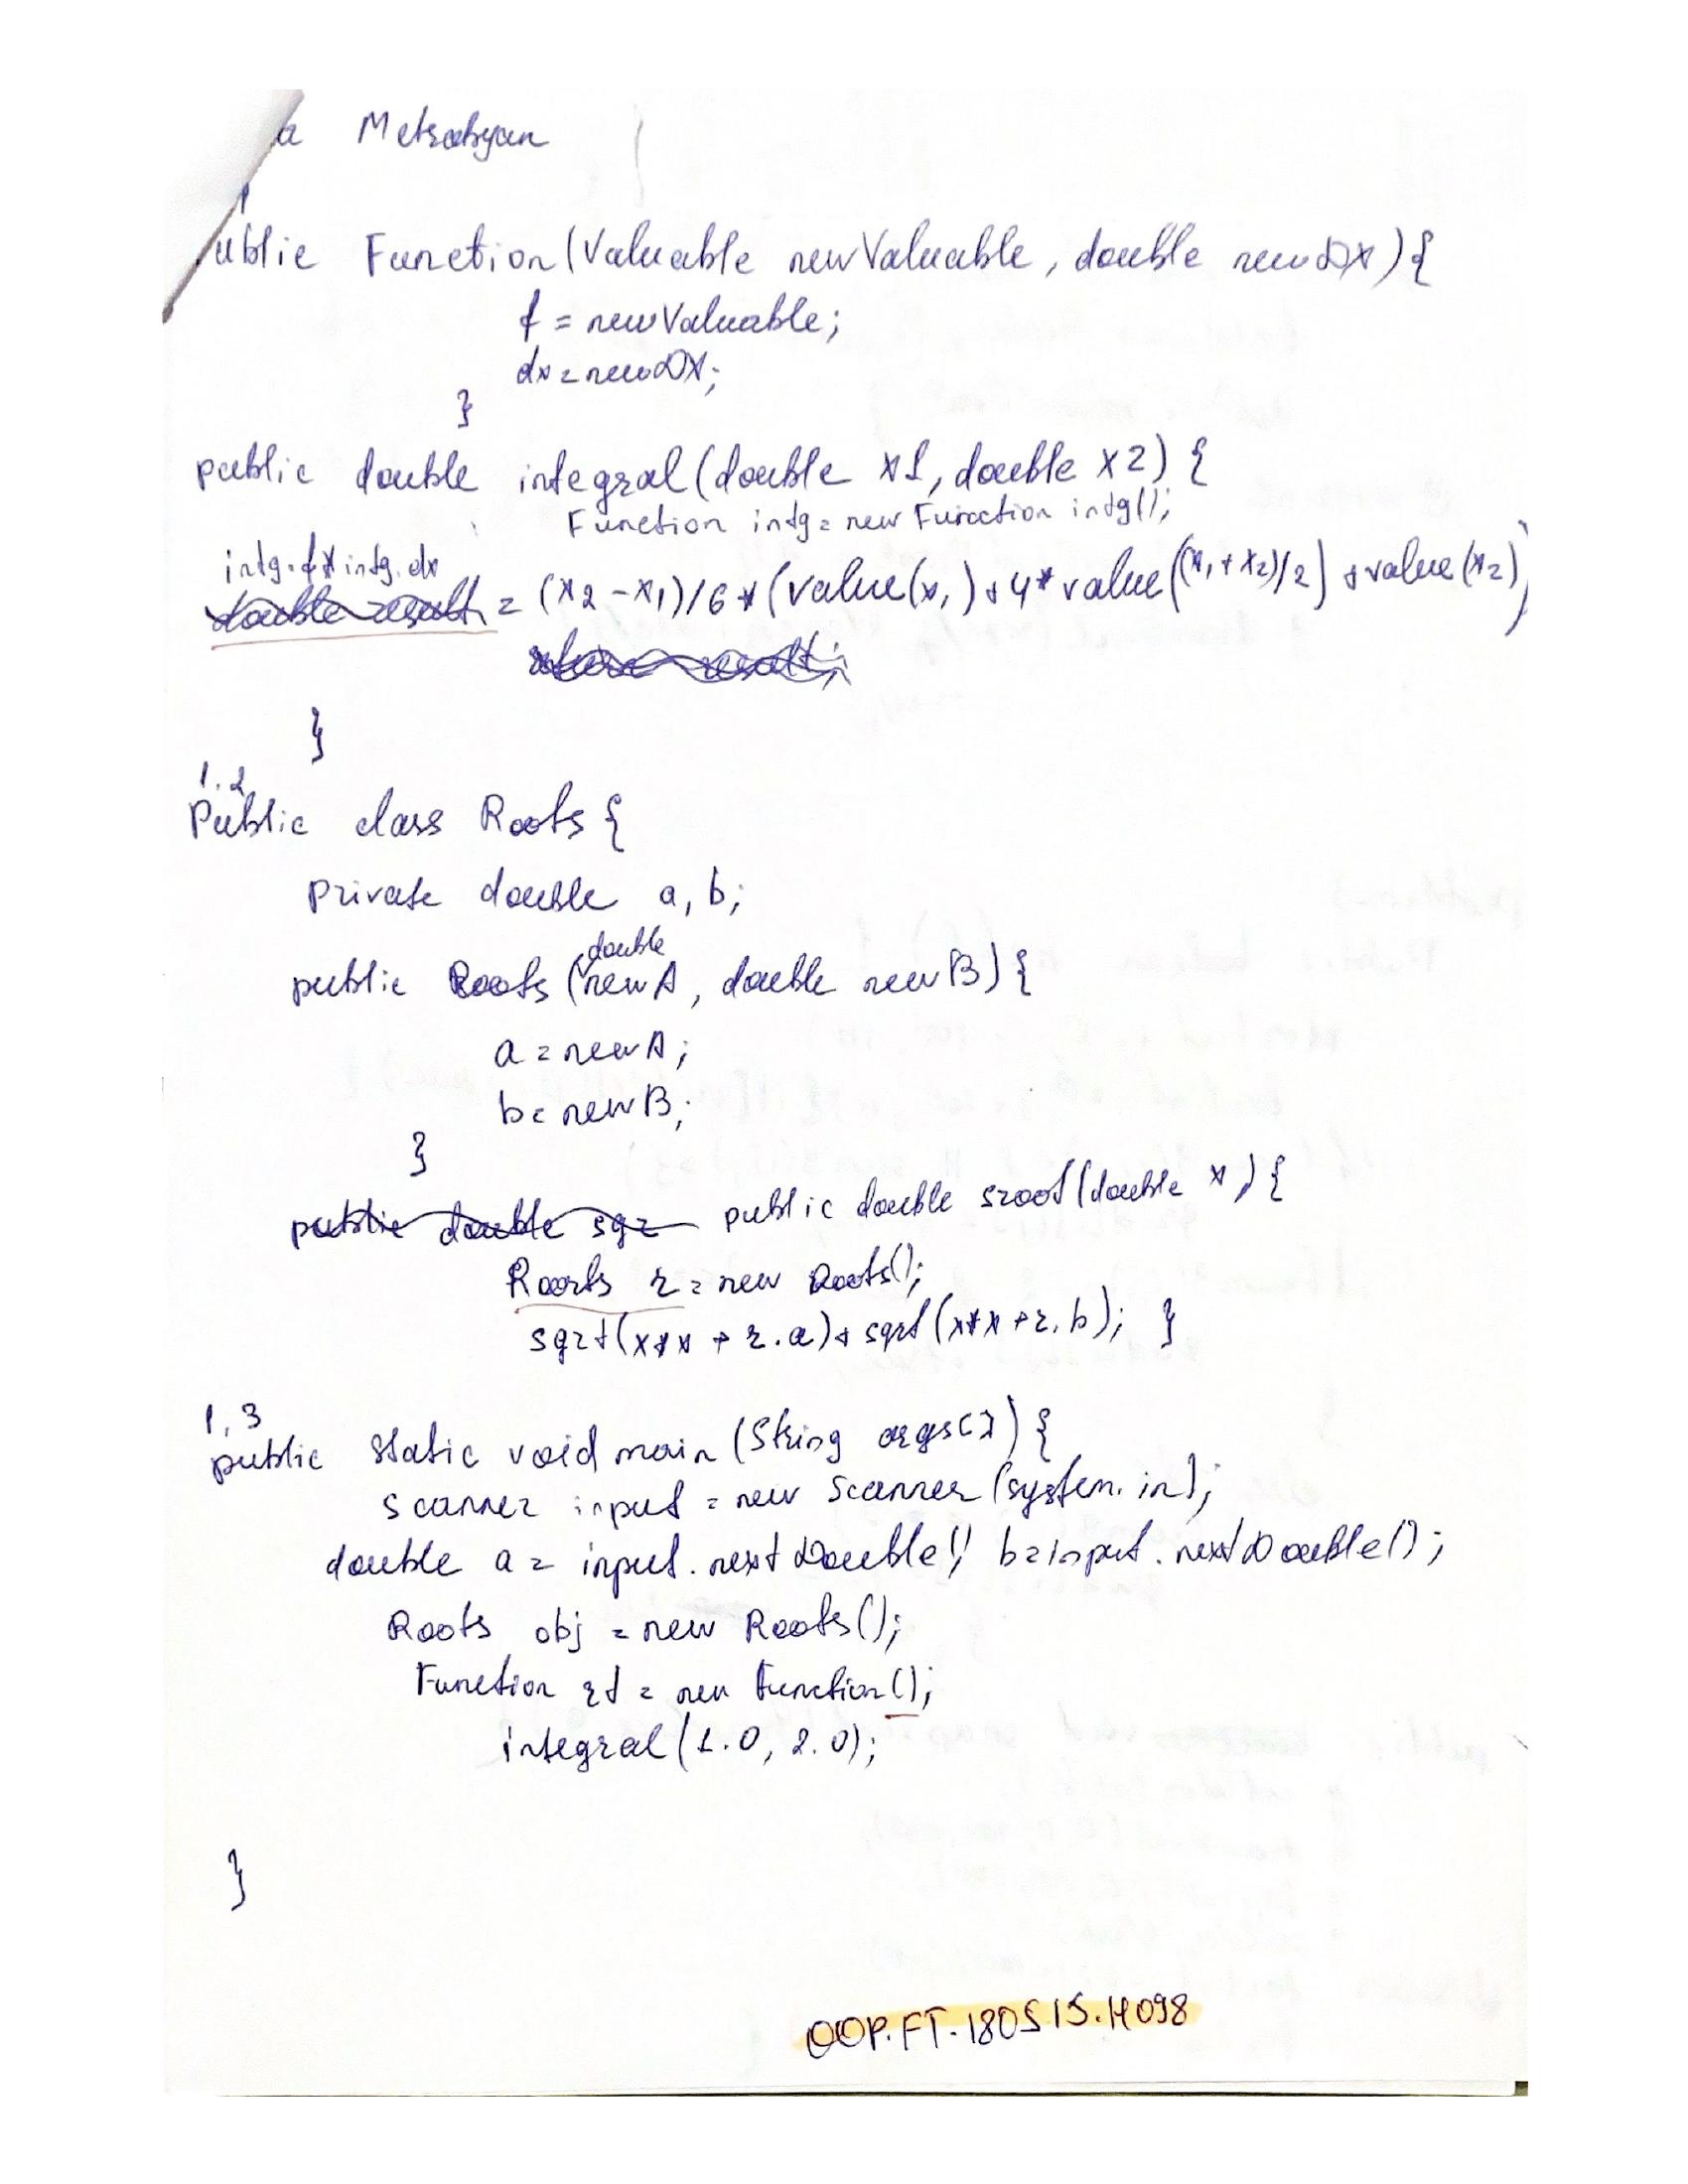 a Metrabyan
ublic Function(Valuable newValuable, double newDX){
f = newValuable;
dx = newDX;
}
public double integral(double x1, double x2) {
Function intg = new Function intg();
intg.f * intg.dx
double result = (x2 - x1)/6 * (value(x1) + 4 * value((x1 + x2)/2) + value(x2)
return result;
}
1.2
Public class Roots {
private double a, b;
double
public Roots (newA, double newB) {
a = newA;
b = newB;
}
public double sqr public double sroot(double x) {
Roots r = new Roots();
sqrt(x*x + r.a) + sqrt(x*x + r.b); }
1,3
public static void main (String args[]) {
Scanner input = new Scanner (system.in);
double a = input.nextDouble(), b = input.nextDouble();
Roots obj = new Roots();
Function rt = new Function();
integral(1.0, 2.0);
}
OOP.FT-180515.H098